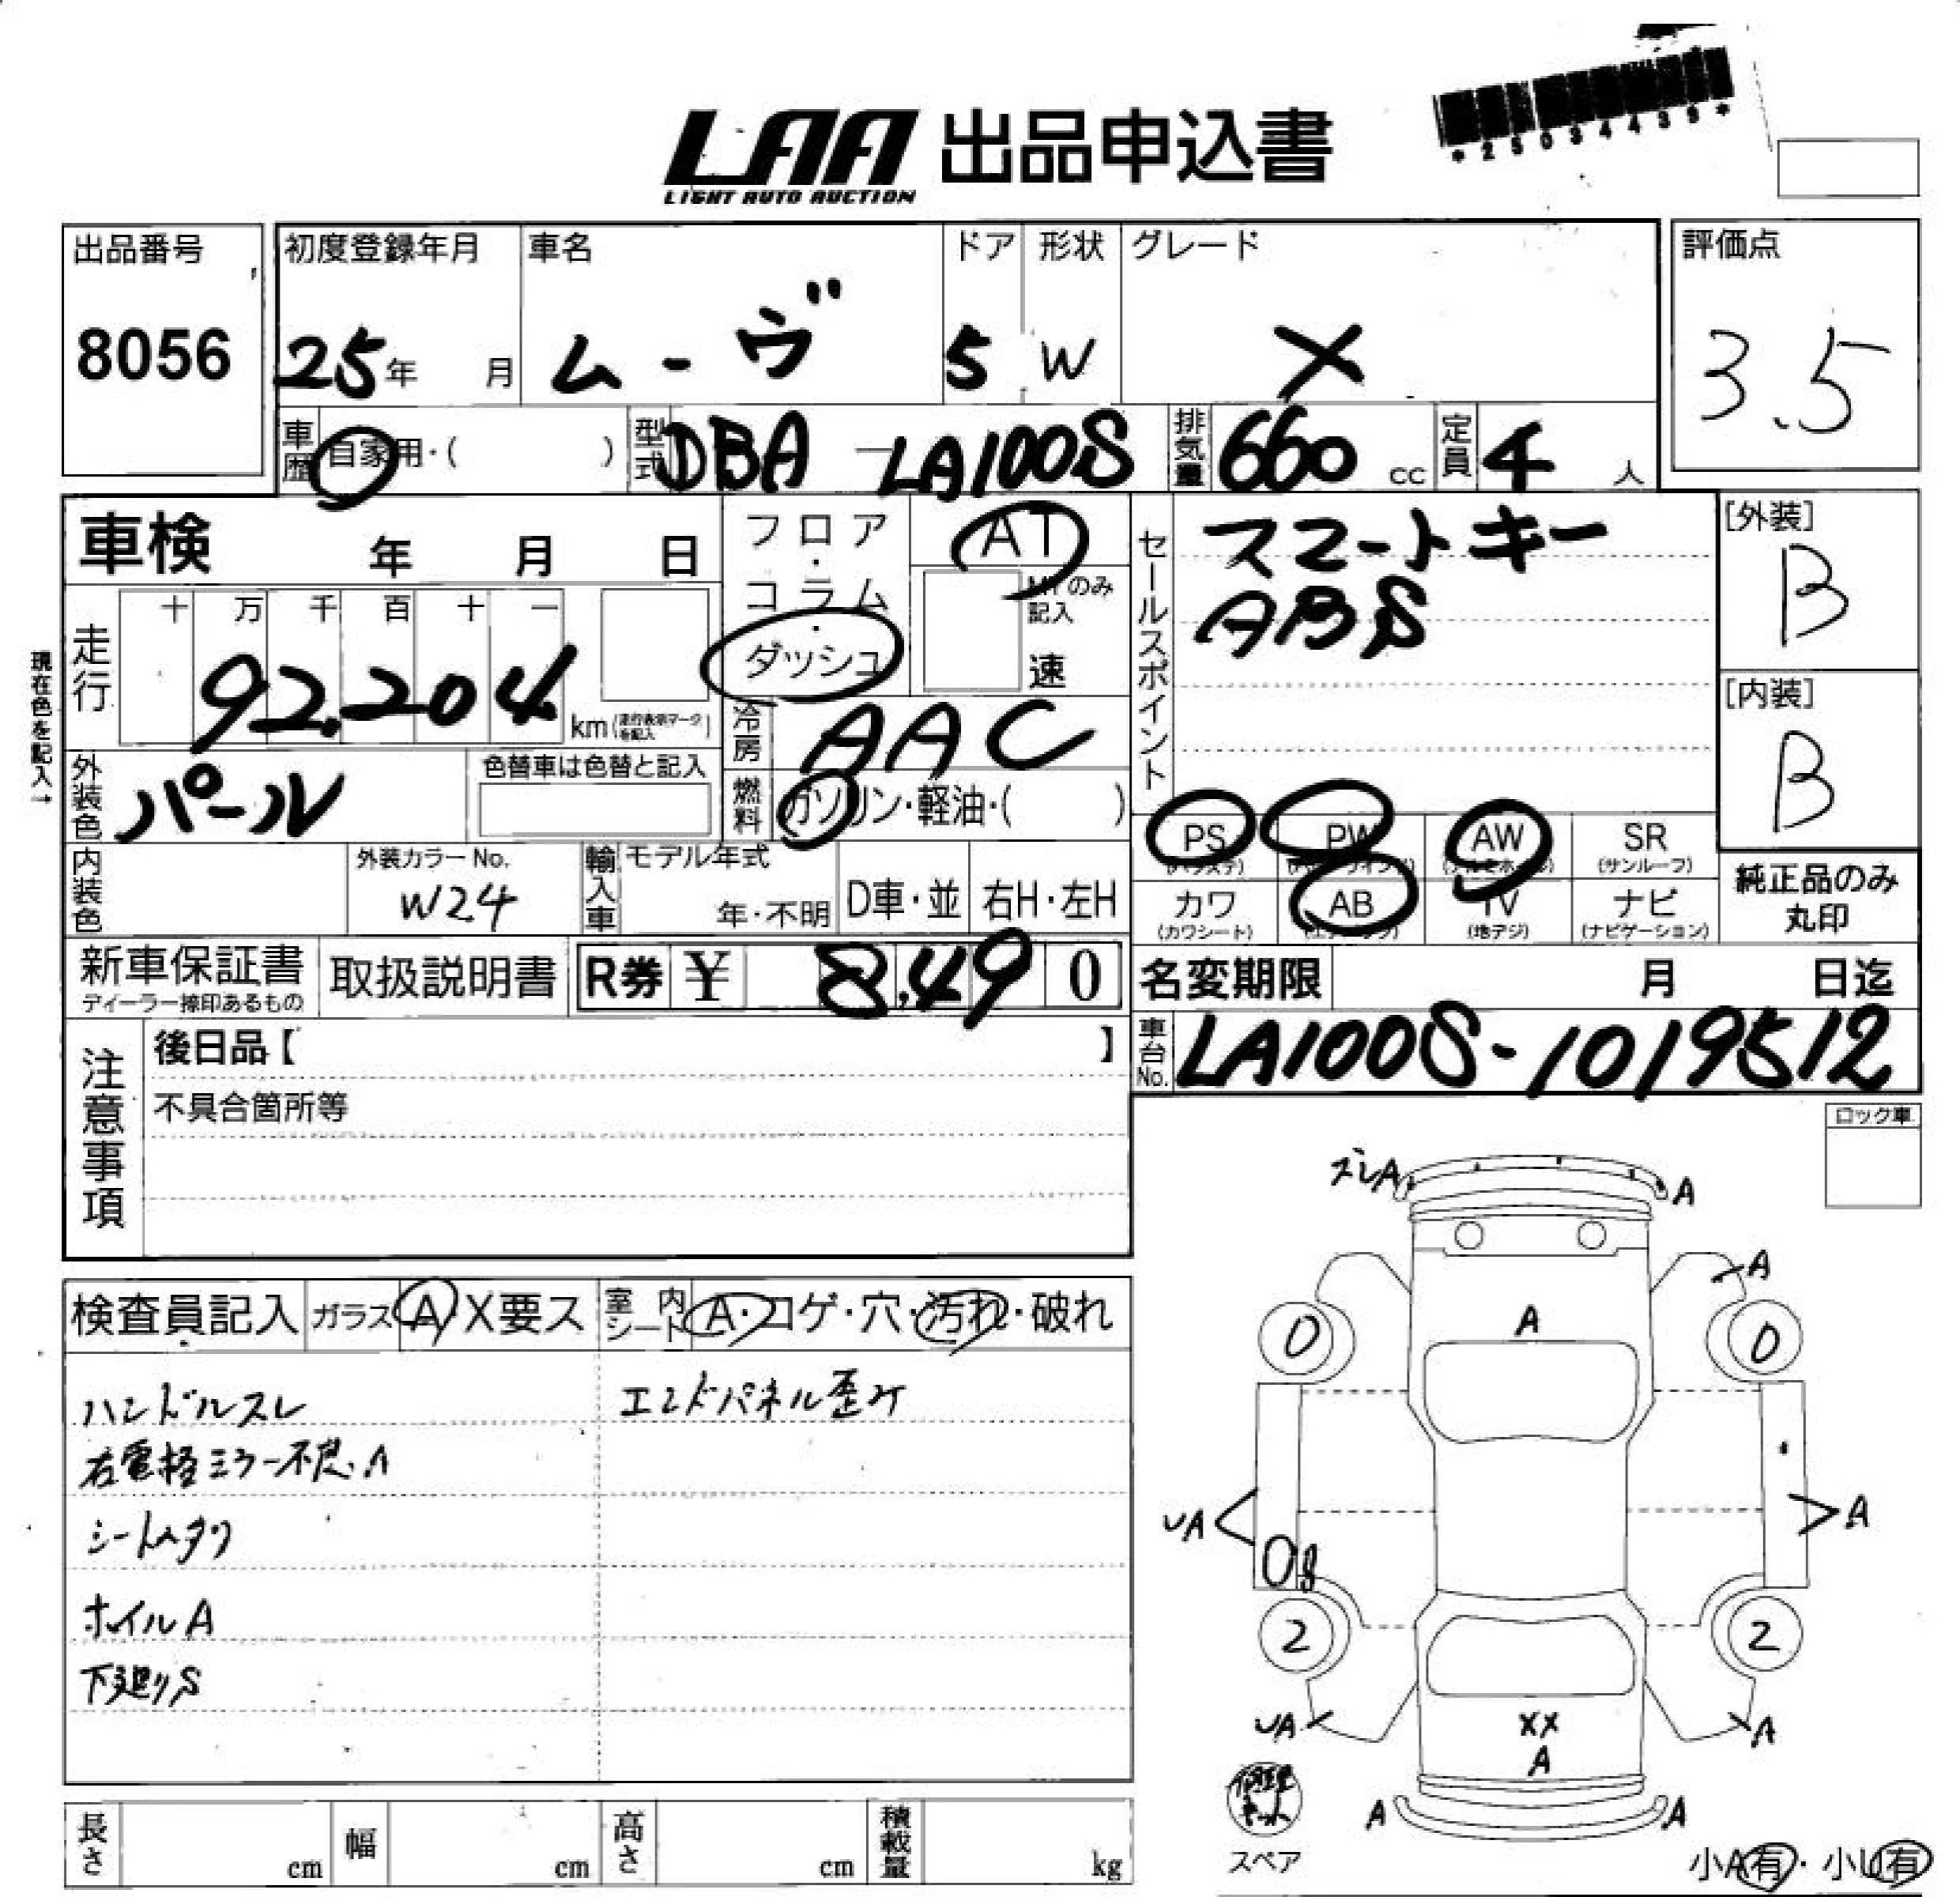 *2503443 9*
LAA 出品申込書
LIGHT AUTO AUCTION
出品番号 初度登録年月 車名 ドア 形状 グレード 評価点
8056 25年 月 ムーヴ 5 W X 3.5
車歴 自家用・( ) 型式 DBA-LA100S 排気量 660 cc 定員 4 人
車検 年 月 日 フロア・コラム・ダッシュ AT
MTのみ記入 速
セールスポイント スマートキー
ABS
[外装] B
現在色を記入→
走行 十 万 千 百 十 一
92,204 km(走行表示マークを記入)
[内装] B
冷房 AAC
外装色 パール 色替車は色替と記入
燃料 ガソリン・軽油・( )
PS (パワステ) PW (パワーウインド) AW (アルミホイール) SR (サンルーフ)
内装色 外装カラーNo. W24 輸入車 モデル年式 年・不明 D車・並 右H・左H
カワ (カワシート) AB (エアーバッグ) TV (地デジ) ナビ (ナビゲーション)
純正品のみ丸印
新車保証書 ディーラー捺印あるもの 取扱説明書 R券 ¥ 8,490
名変期限 月 日迄
車台No. LA100S-1019512
注意事項 後日品【 】
不具合箇所等
ロック車
ズレA A
A
A
0 0
検査員記入 ガラス A X要ス 室内シート A・コゲ・穴・汚れ・破れ
ハンドルスレ エンドパネル歪み
右電格ミラー不良、A
シートヘタリ
ホイルA
下廻りS
UA A
2 2
UA A
XX
A
A A
修理キット
スペア
小A有・小U有
長さ cm 幅 cm 高さ cm 積載量 kg